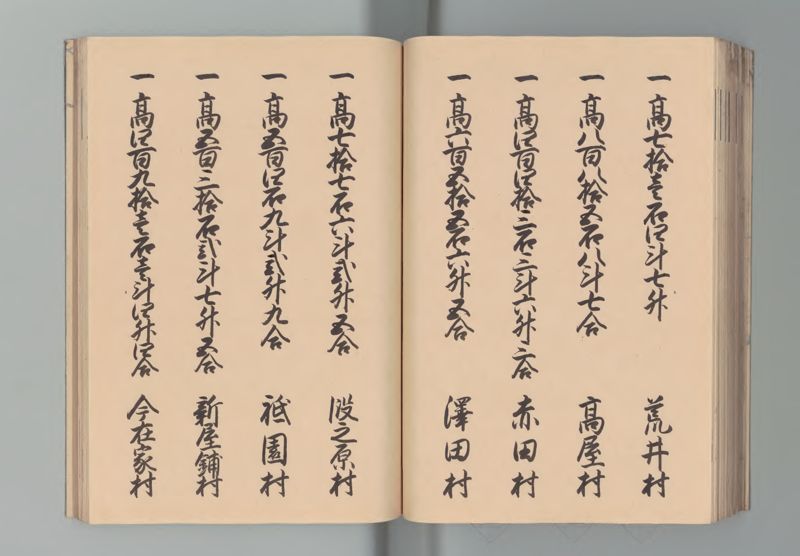 一 高七拾壱石四斗七升 荒井村
一 高八百八拾五石八斗七合 高屋村
一 高四百四拾三石二斗六升三合 赤田村
一 高六百五拾五石六升五合 澤田村
一 高七拾七石六斗弐升五合 段之原村
一 高五百四石九斗弐升九合 祗園村
一 高五百三拾石弐斗七升五合 新屋鋪村
一 高四百九拾壱石壱斗四升四合 今在家村